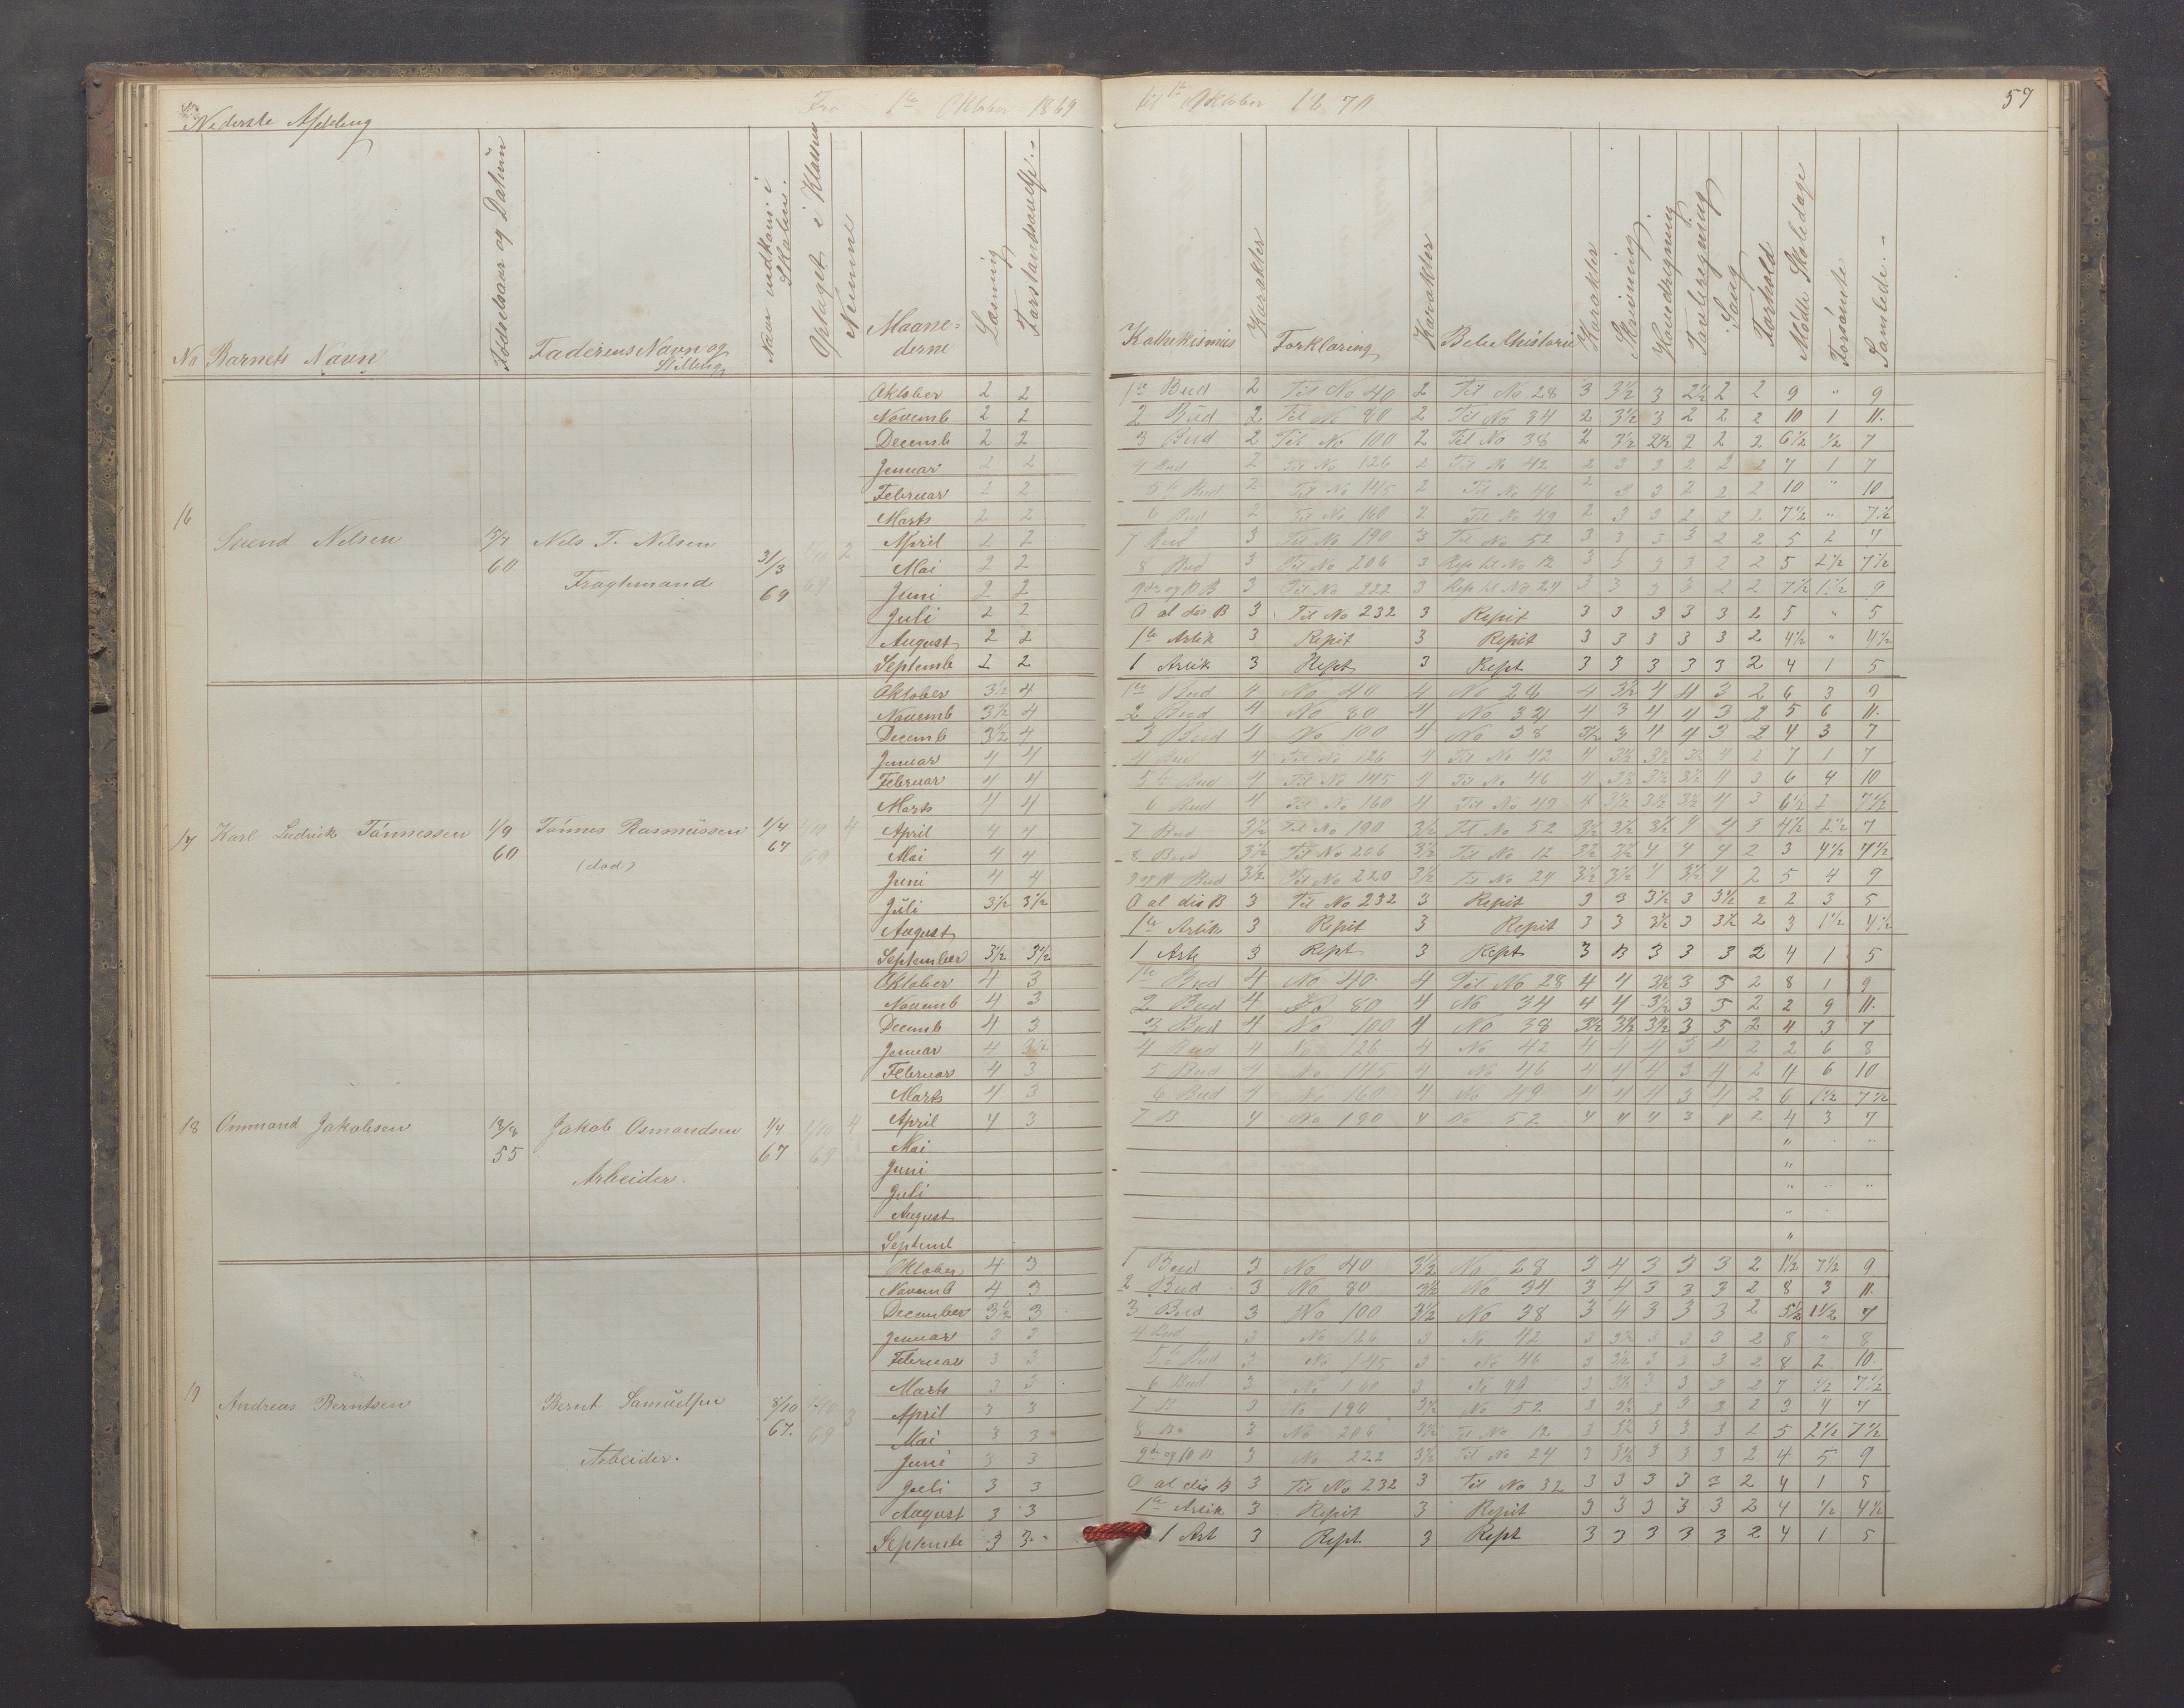 Nederste Afdeling
Fra 1te Oktober 1869
til 1te Oktober 1870
57
No Barnets Navn
Fødselsaar og Datum
Faderens Navn og Stilling
Naar indkom i Skolen.
Optaget i Klassen
Nemme
Maanederne
Læsning
Forstandsøvelse
Kathekismus
Karakter
Forklaring
Karakter
Bibelhistorie
Karakter
Skrivning
Hovedregning
Tavleregning
Sang
Forhold
Mødte Skoledage
Forsømte
Samlede
16 Svend Nilsen
60
Nels T. Nilsen
Fragtmand
31/3 69
2
Oktober 2 2 1te Bud 2 Til No 40 2 Til No 28 3 3½ 3 2½ 2 2 9 " 9
Novemb 2 2 2 Bud 2 Til No 80 2 Til No 34 2 3½ 3 2 2 2 10 1 11.
Decemb 2 2 3 Bud 2 Til No 100 2 Til No 38 2 3½ 2½ 2 2 2 6½ ½ 7
Januar 2 2 4 Bud 2 Til No 126 2 Til No 42 2 3 3 2 2 2 7 1 7
Februar 2 2 5te Bud 2 Til No 145 2 Til No 46 2 3 3 2 2 2 10 " 10
Marts 2 2 6 Bud 2 Til No 160 2 Til No 49 2 3 3 2 2 2 7½ " 7½
April 2 2 7 Bud 3 Til No 190 3 Til No 52 3 3 3 3 2 2 5 2 7
Mai 2 2 8 Bud 3 Til No 206 3 Rep til No 12 3 3 3 3 2 2 5 2½ 7½
Juni 2 2 9de og 10 B 3 Til No 222 3 Rep til No 24 3 3 3 3 2 2 7½ 1½ 9
Juli 2 2 O al dis B 3 Til No 232 3 Repit 3 3 3 3 3 2 5 " 5
August 2 2 1te Artik 3 Repit 3 Repit 3 3 3 3 3 2 4½ " 4½
Septemb 2 2 1 Artik 3 Rept 3 Rept 3 3 3 3 3 2 4 1 5
17 Karl Ludvik Tønnessen
1/9 60
Tønnes Rasmussen
(død)
1/4 67
69
4
Oktober 3½ 4 1te Bud 4 No 40 4 No 28 4 3½ 4 4 3 2 6 3 9
Novemb 3½ 4 2 Bud 4 No 80 4 No 34 4 3 4 4 3 2 5 6 11.
Decemb 3½ 4 3 Bud 4 No 100 4 No 38 3½ 3 4 4 3 2 4 3 7
Januar 4 4 4 Bud 4 Til No 126 4 Til No 42 4 3½ 3½ 3½ 4 2 7 1 7
Februar 4 4 5te Bud 4 Til No 145 4 Til No 46 4 3½ 3½ 3½ 4 3 6 4 10
Marts 4 4 6 Bud 4 Til No 160 4 Til No 49 4 3½ 3½ 3½ 4 3 6½ 1 7½
April 4 4 7 Bud 3½ Til No 190 3½ Til No 52 3½ 3½ 3½ 4 4 3 4½ 2½ 7
Mai 4 4 8 Bud 3½ Til No 206 3½ Til No 12 3½ 3½ 4 4 4 2 3 4½ 7½
Juni 4 4 9 og 10 Bud 3½ Til No 220 3½ Til No 24 3½ 3½ 4 3½ 4 2 5 4 9
Juli 3½ 3½ O al dis B 3 Til No 232 3 Repit 3 3 3½ 3 3½ 2 2 3 5
August 1te Artik 3 Repit 3 Repit 3 3 3½ 3 3½ 2 3 1½ 4½
September 3½ 3½ 1 Art 3 Rept 3 Rept 3 3 3 3 3 2 4 1 5
18 Ommund Jakobsen
13/8 55
Jakob Osmondsen
Arbeider.
1/4 67
1/10 69
4
Oktober 4 3 1te Bud 4 No 40. 4 Til No 28 4 4 3½ 3 3 2 8 1 9
Novemb 4 3 2 Bud 4 No 80 4 No 34 4 4 3½ 3 3 2 2 9 11.
Decemb 4 3 3 Bud 4 No 100 4 No 38 3½ 3½ 3½ 3 3 2 4 3 7
Januar 4 3½ 4 Bud 4 No 126 4 No 42 4 4 4 3 4 2 2 6 8
Februar 4 3 5 Bud 4 No 145 4 No 46 4 4 4 3 4 2 4 6 10
Marts 4 3 6 Bud 4 No 160 4 No 49 4 4 4 3 4 2 6 1½ 7½
April 4 3 7 B 4 No 190 4 No 52 4 4 4 3 4 2 4 3 7
Mai " "
Juni "
Juli " " "
August "
Septemb "
19 Andreas Berntsen
Bernt Samuelsen
Arbeider.
8/10 67.
1/10 69
3
Oktober 4 3 1 Bud 3 No 40 3½ No 28 3 4 3 3 3 2 1½ 7½ 9
Novemb 4 3 2 Bud 3 No 80 3½ No 34 3 4 3 3 3 2 8 3 11.
December 3½ 3 3 Bud 3 No 100 3½ No 38 3 4 3 3 3 2 5½ 1½ 7
Januar 3 3 4 Bud 3 No 126 3 No 42 3 3½ 3 3 3 2 8 " 8
Februar 3 3 5te Bud 3 No 145 3 No 46 3 3½ 3 3 3 2 8 2 10.
Marts 3 3 6 Bud 3 No 160 3 No 49 3 3½ 3 3 3 2 7 ½ 7½
April 3 3 7 B 3 No 190 3½ No 52 3 3½ 3 3 3 2 3 4 7
Mai 3 3 8 B 3 No 206 3½ Til No 12 3 3½ 3 3 3 2 5 2½ 7½
Juni 3 3 9de og 10 B 3 No 222 3½ Til No 24 3 3½ 3 3 3 2 4 5 9
Juli 3 3 O al dis B 3 Til No 232 3 Til No 32 3 3 3 3 3 2 4 1 5
August 3 3 1te Artik 3 Repit 3 Repit 3 3 3 3 3 2 4 ½ 4½
Septembe 3 3 1 Art 3 Rept 3 Rept 3 3 3 3 3 2 4 1 5